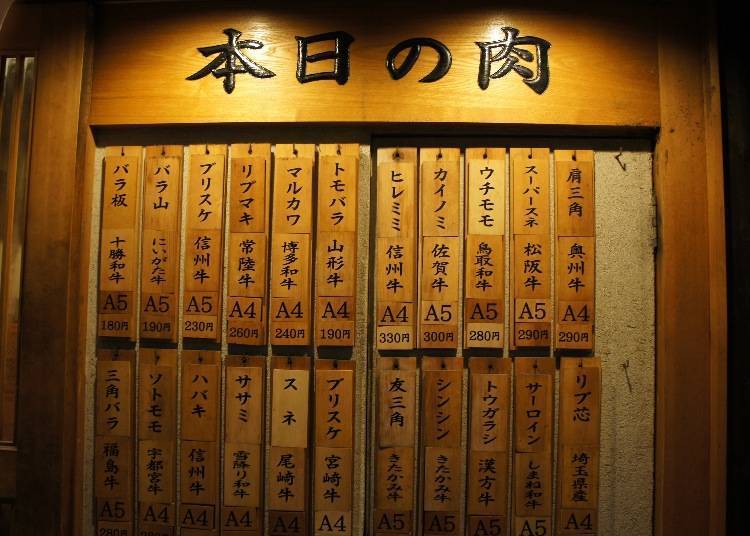 本日の肉
肩三角 奥州牛 A4 290円
スーパースネ 松阪牛 A5 290円
ウチモモ 鳥取和牛 A5 280円
カイノミ 佐賀牛 A5 300円
ヒレミミ 信州牛 A4 330円
トモバラ 山形牛 A4 190円
マルカワ 博多和牛 A4 240円
リブマキ 常陸牛 A4 260円
ブリスケ 信州牛 A5 230円
バラ山 にいがた牛 A5 190円
バラ板 十勝和牛 A5 180円
リブ芯 埼玉県産 A4
サーロイン しまね和牛 A5
トウガラシ 漢方牛 A5
シンシン きたかみ牛 A5
友三角 きたかみ牛 A5
ブリスケ 宮崎牛 A4
スネ 尾崎牛 A5
ササミ 雪降り和牛 A4
ハバキ 信州牛 A4
ソトモモ 宇都宮牛 A4
三角バラ 福島牛 A5 280円